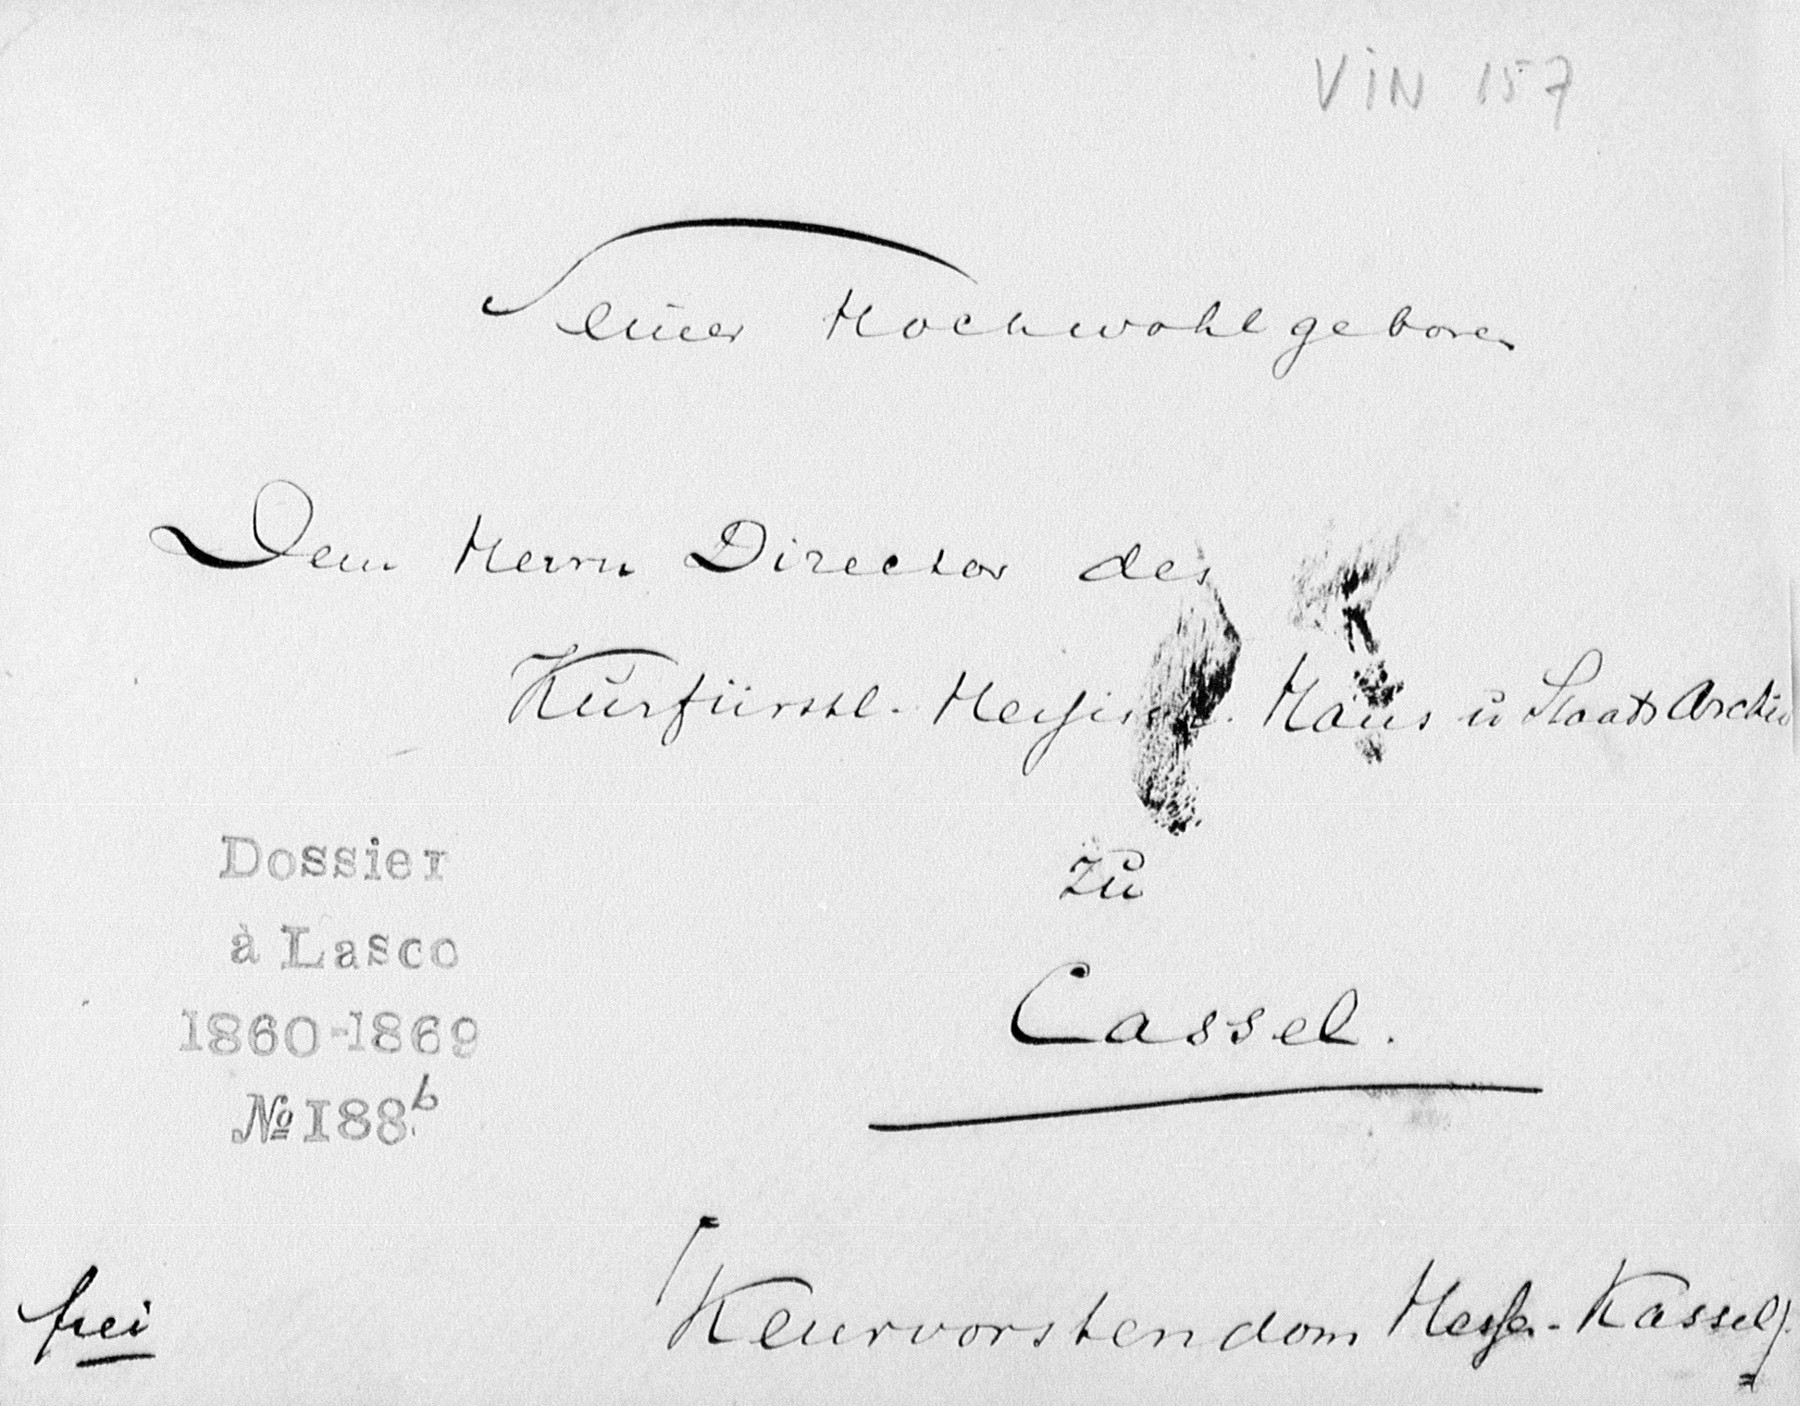 VIN 157
Seiner Hochwohlgeboren
Dem Herrn Director des
Kurfürstl. Hessisch. Haus u Staats Archiv
zu
Cassel.
Dossier
à Lasco
1860-1869
№ 188b
frei
[Keurvorstendom Hessen-Kassel].